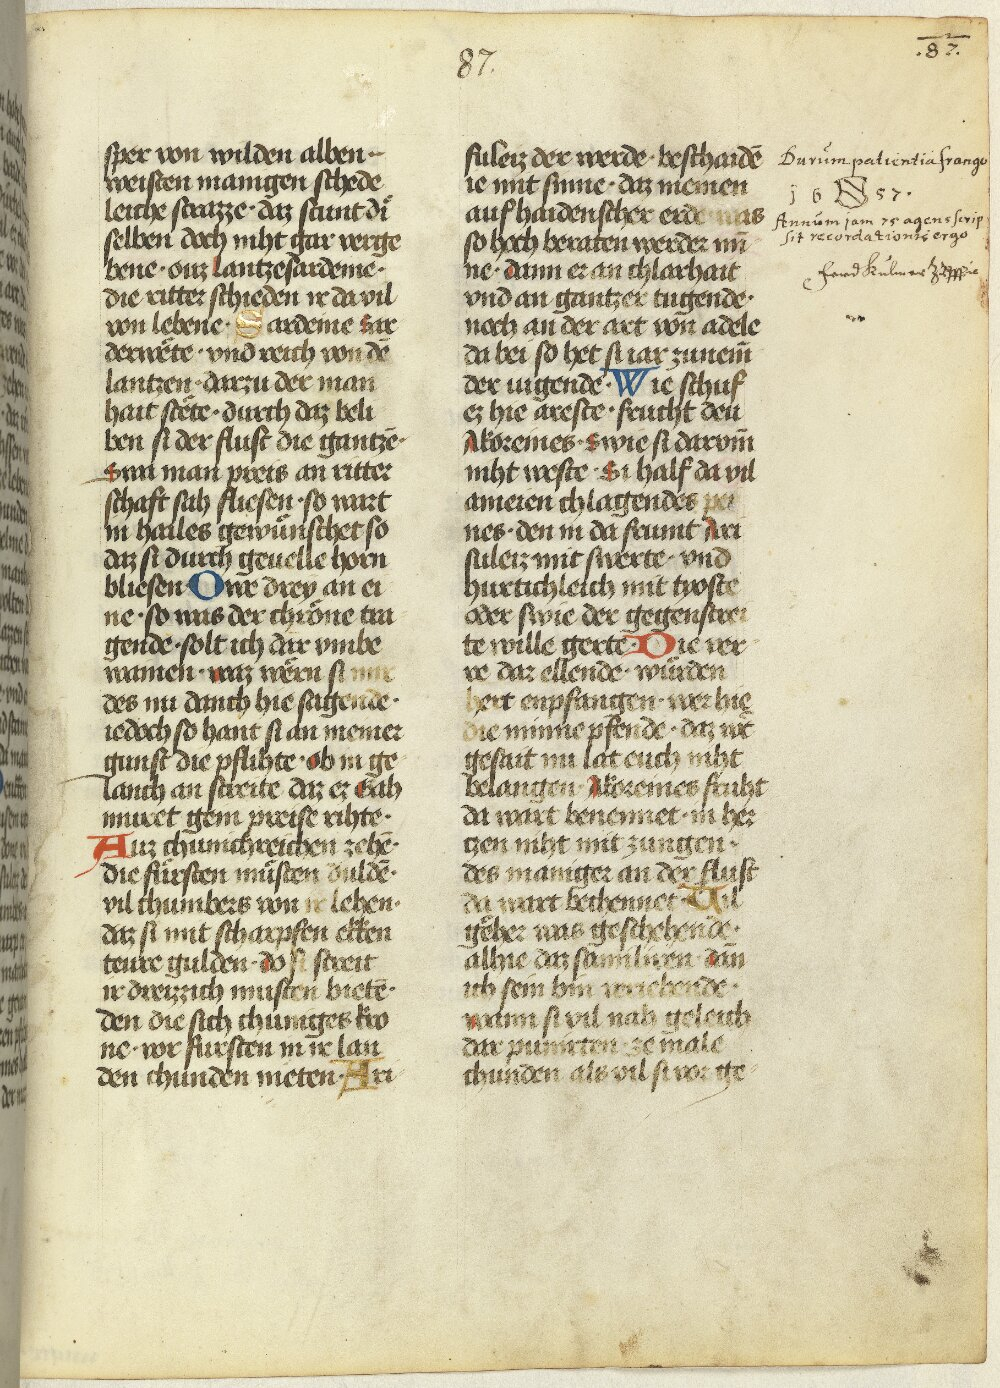 87.
.87.
sper von wilden alben
weisten manigen schede
leiche strazze · daz stunt di
selben doch niht gar verge
bene · ouz Lantzesardeine ·
die ritter schieden ir da vil
von lebene · Sardeine Sar
derwête · vnd reich von dē
lantzen · darzu der man
hait stête · durch daz beli
ben si der flust die gantzē ·
Swa man preis an ritter
schaft sah fliesen · so wart
in hailes gewúnschet so
daz si durch geuelle horn
bliesen · Owe drey an ei
ne · so was der chrône tra
gende · solt ich die vmbe
namen · waz wêrn si mir
des nu danch hie sagende ·
iedoch so hant si an meiner
gunst die pflihte · ob in ge
lanch an streite daz ez Gah
muret gein preise rihte ·
Auz chunichreichen zehē ·
die fúrsten músten duldē ·
vil chumbers von ir lehen ·
daz si mit scharpfen ekken
teure gulden · do si streit
ir dreizzich musten bietē ·
den die sich chuniges kro
ne · vor fursten in ir lan
den chunden nieten · Ari
suleiz der werde · beschaidē
ie mit sinne · daz niemen
auf haidenscher erde was
so hoch beraten werder mī
ne · dann er an chlarhait
vnd an gantzer tugende ·
noch an der art von adele
da bei so het si iar zunem̄
der iugende · Wie schuf
ez hie areste · frucht den
Akoreines · Swie si darvm̄
niht weste · Si half da vil
ameien chlagendes pei
nes · den in da frumt Ari
suleiz mit swerte · vnd
hurtichleich mit tyoste
oder swie der gegenstrei
te wille gerte · Die ver
re daz ellende · wúrden
hert enpfangen · wer hie
die minne pfende · daz wʳ
gesait nu lat euch niht
belangen · Akoreines fruht
da wart benennet · in her
tzen niht mit zungen ·
des maniger an der flust
da wart bechennet · Vil
gêher was geschehende ·
alhie daz samliren · dan̄
ich sein bin veriehende ·
wann si vil nah geleich
dar punirten · ze male
chunden als vil si vor ge
Durúm patientia frango
16 57.
Annúm jam 75 agens scrip
sit recordationis ergo
Ferd Kúlmer